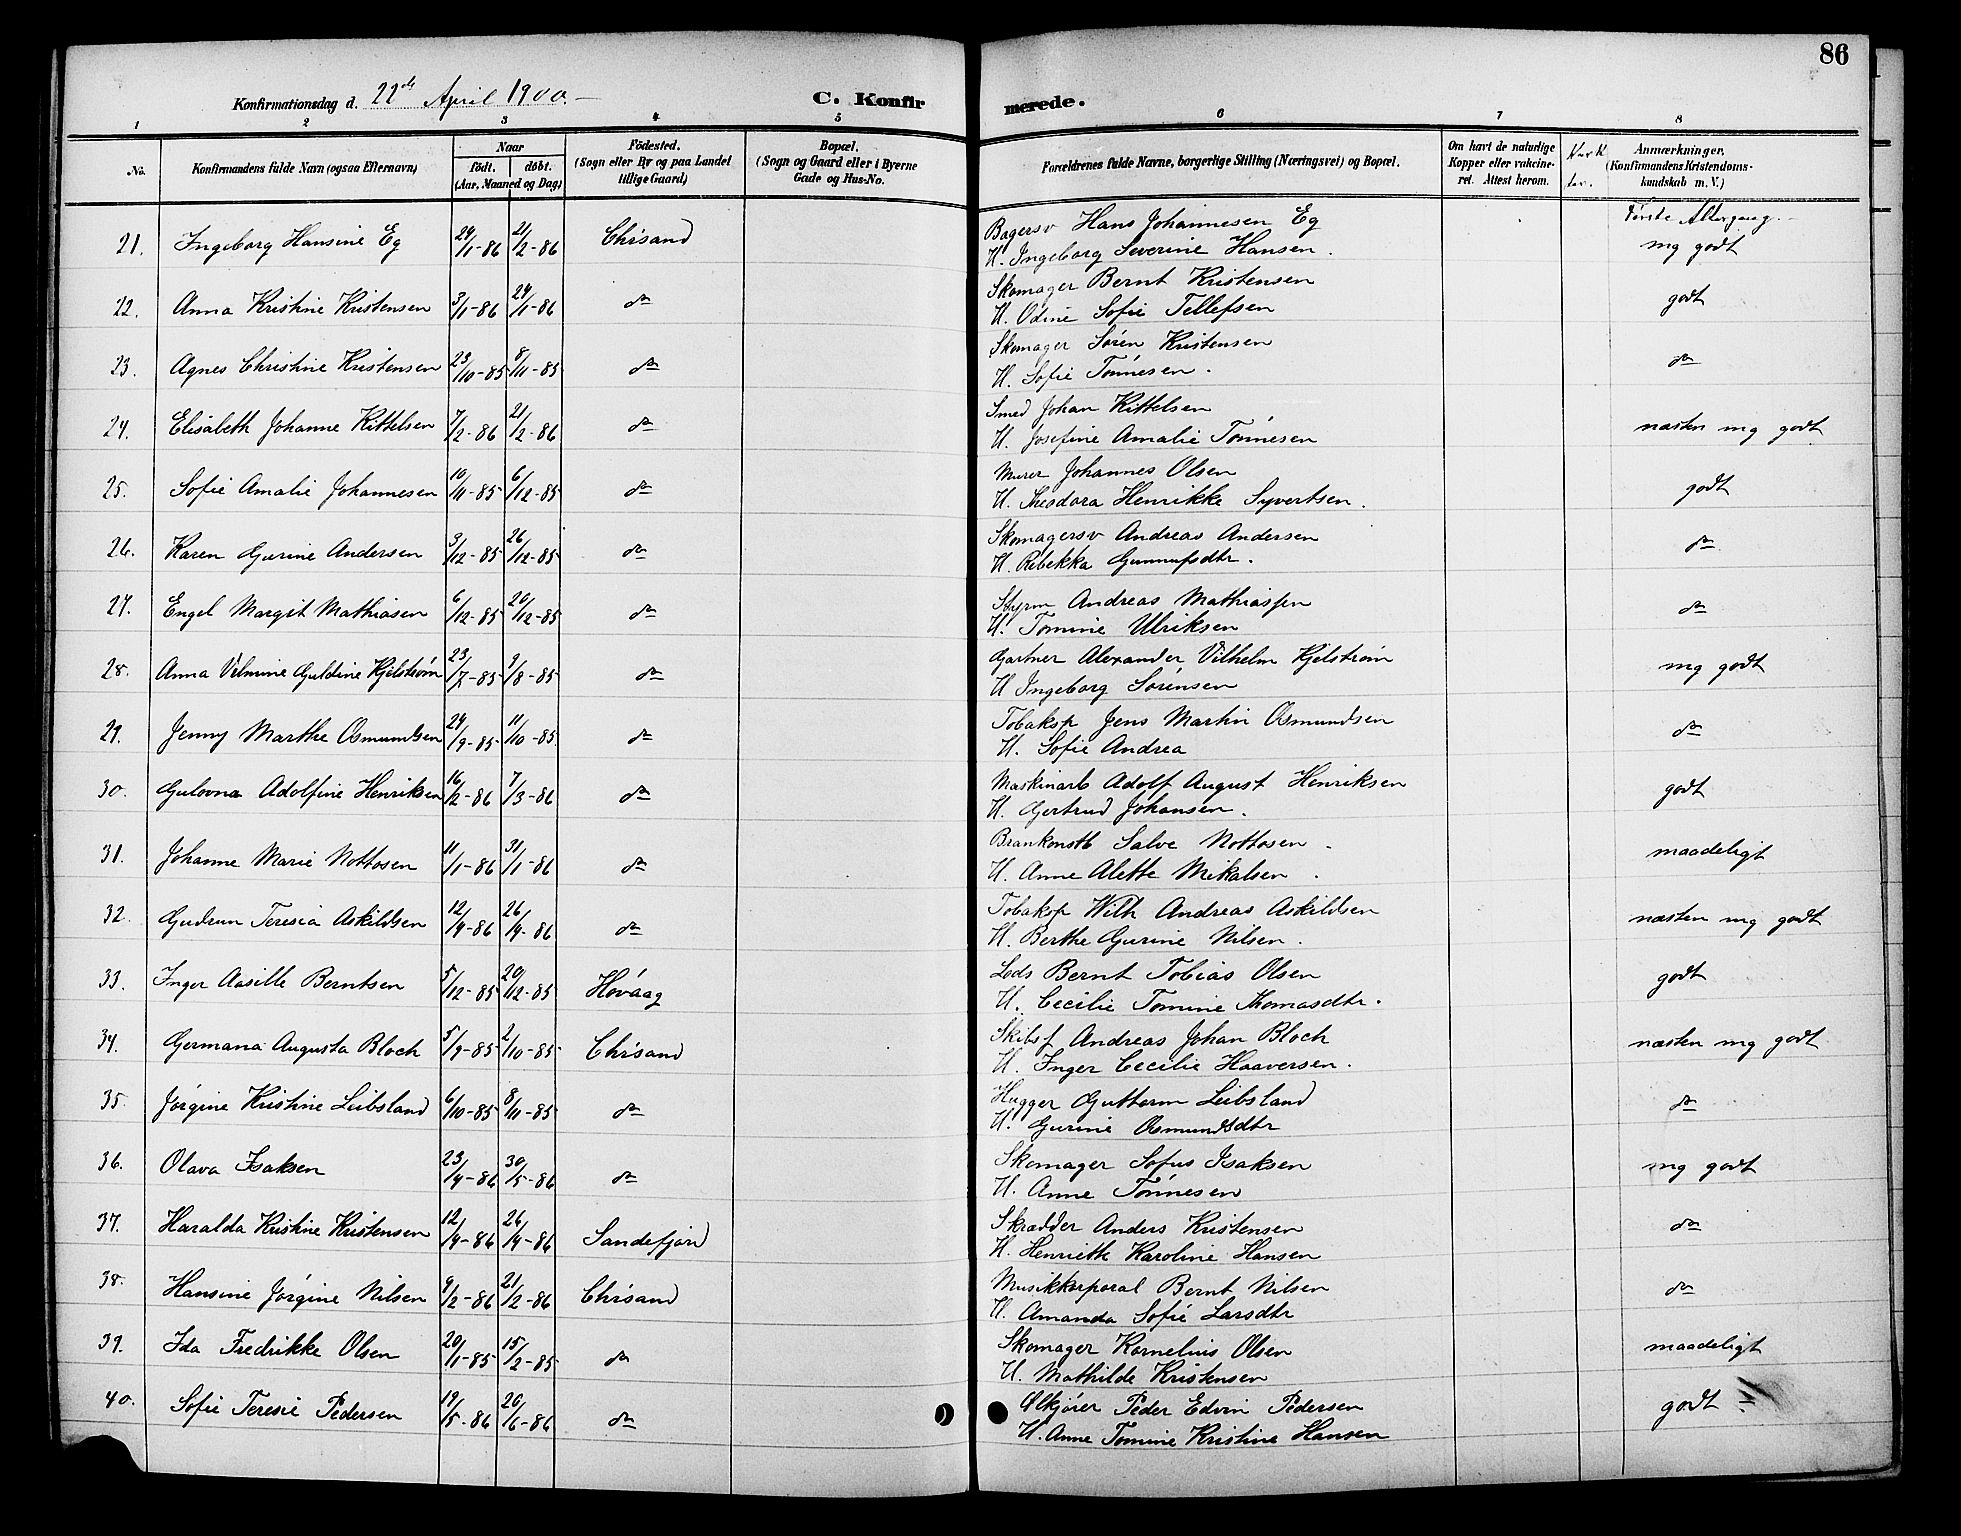 86
Konfirmationsdag d. 22de April 1900.- C. Konfirmerede.
1 2 3 4 5 6 7 8
No. Konfirmandens fulde Navn (ogsaa Efternavn) Naar födt. döbt. (Aar, Maaned og Dag) Födested. (Sogn eller By og paa Landet tillige Gaard) Bopæl. (Sogn og Gaard eller i Byerne Gade og Hus-No. Forældrenes fulde Navne, borgerlige Stilling (Næringsvei) og Bopæl. Om havt de naturlige Kopper eller vakcineret. Attest herom. Anmærkninger. (Konfirmandens Kristendomskundskab m. V.)
Første Altergang.-
21. Ingeborg Hansine Eg 29/1-86 21/2-86 Chrsand Bagersv Hans Johannesen Eg mg godt
H. Ingeborg Severine Hansen.
22. Anna Kristine Kristensen 3/1-86 24/1-86 do Skomager Bernt Kristensen godt
H. Odine Sofie Tellefsen
23. Agnes Christine Kristensen 23/10-85 8/11-85 do Skomager Sören Kristensen do
H. Sofie Tönnesen.
24. Elisabeth Johanne Kittelsen 7/2-86 21/2-86 do Smed Johan Kittelsen næsten mg godt
H. Josefine Amalie Tönnesen
25. Sofie Amalie Johannesen 10/11-85 6/12-85 do Murer Johannes Olsen godt
H. Theodora Henrikke Syvertsen.
26. Karen Gurine Andersen 3/12-85 26/12-85 do Skomagersv Andreas Andersen do
H. Rebekka Gunnufsdtr.
27. Engel Margit Mathiasen 6/12-85 20/12-85 do Styrm Andreas Mathiassen do
H. Tomine Ulriksen
28. Anna Vilmine Guldine Kjelström 23/7-85 9/8-85 do Gartner Alexander Vilhelm Kjelström mg godt
H Ingeborg Sörensen
29. Jenny Marthe Osmundsen 24/9-85 11/10-85 do Tobaksp Jens Martin Osmundsen do
H. Sofie Andrea
30. Gulovna Adolfine Henriksen 16/2-86 7/3-86 do Maskinarb Adolf August Henriksen godt
H. Gertrud Johansen.
31. Johanne Marie Nottosen 11/1-86 31/1-86 do Brankonstb Salve Nottosen. maadeligt
H. Anne Alette Mikalsen.
32. Gudrun Teresia Askildsen 12/4-86 26/4-86 do Tobaksp Wilh Andreas Askildsen næsten mg godt
H. Berthe Gurine Nilsen.
33. Inger Aasille Berntsen 5/12-85 20/12-85 Hövaag Lods Bernt Tobias Olsen godt
H. Cecilie Tomine Thomasdtr.
34. Germana Augusta Bloch 5/9-85 2/10-85 Chrsand Skibsf Andreas Johan Bloch næsten mg godt
H. Inger Cecilie Haaversen.
35. Jörgine Kristine Leibsland 6/10-85 8/11-85 do Hugger Guttorm Leibsland do
H. Gurine Osmundsdtr
36. Olava Isaksen 23/4-86 30/5-86 do Skomager Sofus Isaksen mg godt
H. Anne Tönnesen
37. Haralda Kristine Kristensen 12/4-86 26/4-86 Sandefjord Skrædder Anders Kristensen do
H. Henriette Karoline Hansen
38. Hansine Jörgine Nilsen 9/2-86 21/2-86 Chrsand Musikkorporal Bernt Nilsen do
H. Amanda Sofie Larsdtr
39. Ida Fredrikke Olsen 20/1-85 15/2-85 do Skomager Kornelius Olsen maadeligt
H. Mathilde Kristensen
40. Sofie Teresie Pedersen 19/5-86 20/6-86 do Ölkjörer Peder Edvin Pedersen godt
H. Anne Tomine Kristine Hansen